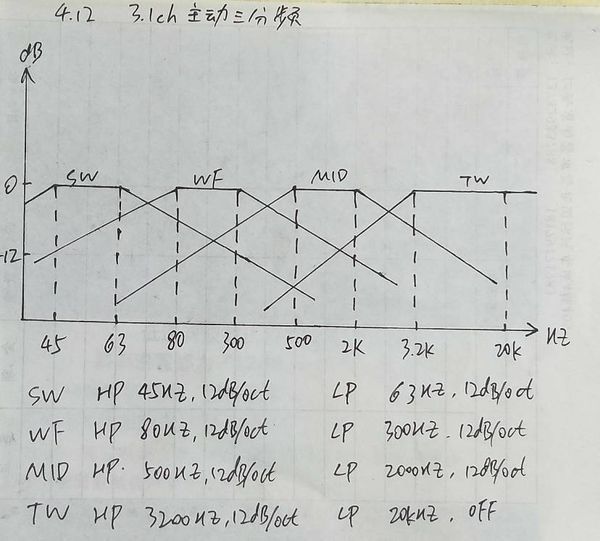 4.12 3.1ch 主动三分频
dB
SW WF MID TW
0
-12
45 63 80 300 500 2K 3.2K 20K HZ
SW HP 45HZ, 12dB/oct LP 63HZ, 12dB/oct
WF HP 80HZ, 12dB/oct LP 300HZ. 12dB/oct
MID HP. 500HZ, 12dB/oct LP 2000HZ, 12dB/oct
TW HP 3200HZ, 12dB/oct LP 20KHZ. OFF